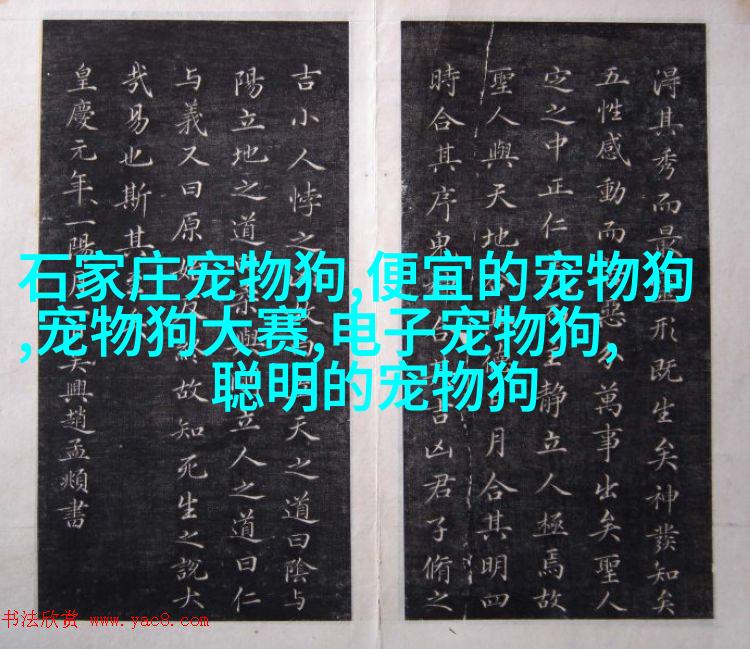 淂其秀而最形既生矣神發知矣
五性感動而惡分萬事出矣聖人
定之中正仁主靜立人極焉故
聖人與天地德月合其明四
時合其序鬼合吉凶君子脩之
吉小人悖之故曰天之道曰陰与
陽立地之道柔與立人之道曰仁
与義又曰原始反終故知死生之說大
哉易也斯其
皇慶元年一陽吳興趙孟頫書
石家庄宠物狗,便宜的宠物狗
,宠物狗大赛,电子宠物狗,
聪明的宠物狗
书法欣赏 www.yac8.com